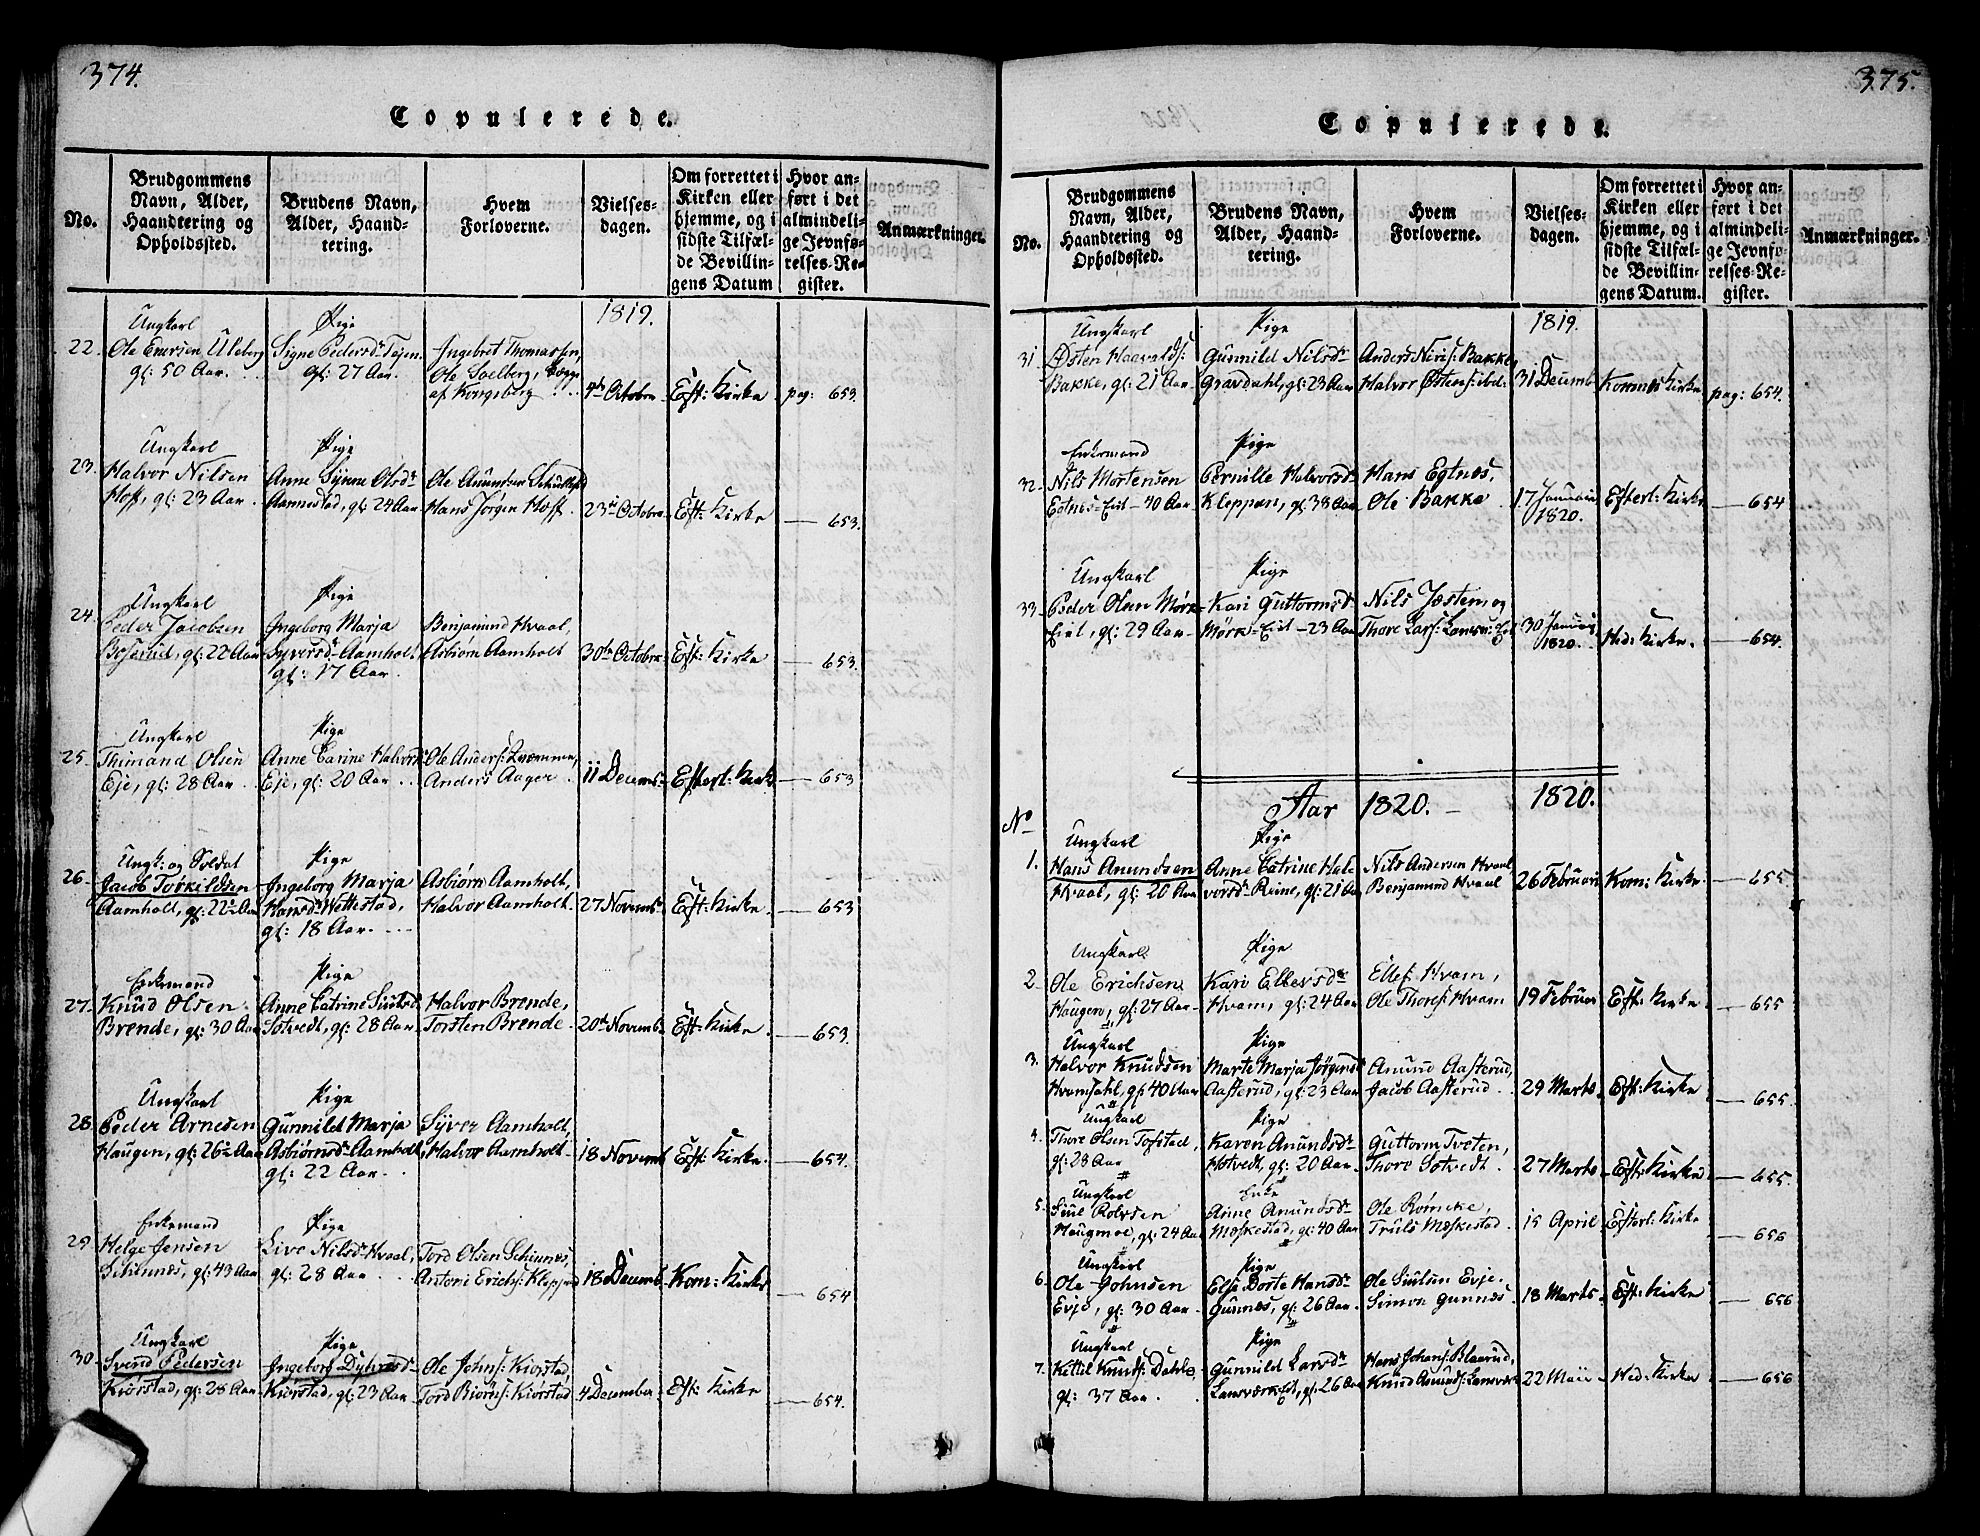 374.
Copulerede.
No.
Brudgommens
Navn, Alder,
Haandtering og
Opholdssted.
Brudens Navn,
Alder, Haand-
tering.
Hvem
Forloverne.
Vielses-
dagen.
Om forrettet i
Kirken eller
hjemme, og i
sidste Tilfæl-
de Bevillin-
gens Datum
Hvor an-
ført i det
almindeli-
ge Jevnfø-
relses-Re-
gister.
Anmærkninger.
1819.
22.
Ungkarl
Ole Enersen Uleberg
gl: 50 Aar.
Pige
Signe Pedersdr Tejen
gl: 27 Aar.
Ingebret Thomassen,
Ole Soelberg, begge
af Kongsberg
4de Octobr
Eft: Kirke
pag: 653.
23.
Ungkarl
Halvor Nilsen
Hoff, gl: 23 Aar.
Pige
Anne Synne Olsdr
Aannestad, gl: 24 Aar
Ole Amundsen
Hans Jørgen Hoff
23de Octobr
Eft: Kirke
653.
24.
Ungkarl
Peder Jacobsen
Boserud, gl: 22 Aar
Pige
Ingeborg Marja
Syversdr Aamholt
gl: 17 Aar.
Benjamund Hvaal,
Asbiørn Aamholt
30te Octobr
Eft: Kirke
653.
25.
Ungkarl
Thimand Olsen
Eje, gl: 28 Aar
Pige
Anne Carine Halvorsd
Eje, gl: 20 Aar
Ole Anders:
Anders Aager
11 Decembr
Efterl: Kirke
653
26.
Ungk: og Soldat
Jacob Torkildsen
Aamholt, gl: 22½ Aar
Pige
Ingeborg Marja
Hansdr Wettestad,
gl: 18 Aar.
Asbiørn Aamholt,
Halvor Aamholt.
27 Novembr
Eft: Kirke.
653
27.
Enkemand
Knud Olsen
Brende, gl: 30 Aar
Pige
Anne Catrine Siulsd
Sotvedt, gl: 28 Aar
Halvor Brende,
Torsten Brende
20de Novemb
Eft: Kirke
653.
28.
Ungkarl
Peder Arnesen
Haugen, gl: 26½ Aar
Pige
Gunnild Marja
Asbiørnsdr Aamholt,
gl: 22 Aar.
Syver Aamholt,
Halvor Aamholt
18 Novemb
Eft: Kirke.
654.
29.
Enkemand
Helge Jensen
Schinnes, gl: 43 Aar
Pige
Live Nilsdr Hvaal,
gl: 28 Aar
Tord Olsen Schinnes,
Antoni Erichs: Kleppen
18 Decemb
Kom: Kirke
654
30.
Ungkarl
Svend Pedersen
Kiørstad, gl: 28 Aar
Pige
Ingeborg Dyhresd
Kiørstad, gl: 23 Aar
Ole Johns: Kiørstad,
Tord Biørns: Kiørstad
4 December
Eft: Kirke
654.
375.
Copulerede.
No.
Brudgommens
Navn, Alder,
Haandtering og
Opholdssted.
Brudens Navn,
Alder, Haand-
tering.
Hvem
Forloverne.
Vielses-
dagen.
Om forrettet i
Kirken eller
hjemme, og i
sidste Tilfæl-
de Bevillin-
gens Datum.
Hvor an-
ført i det
almindeli-
ge Jevnfø-
relses-Re-
gister.
Anmærkninger.
1819.
31.
Ungkarl
Østen Haavalds:
Bakke, gl: 21 Aar
Pige
Gunnild Nilsdr
Gravdahl, gl: 23 Aar
Anders Niris: Bakke
Halvor Østens: ibd:
31 Decemb
Kommes Kirke
pag: 654.
32.
Enkemand
Nils Mortensen
Egtnes-Eiet - 40 Aar
Pige
Pernille Halvorsdr
Kleppen, gl: 38 Aar
Hans Egtnes,
Ole Bakke
17 Januari
1820.
Efterl: Kirke
654
33.
Ungkarl
Peder Olsen Mørk-
Eiet, gl: 29 Aar
Pige
Kari Guttormsd
Mørk-Eiet - 23 Aar
Nils Jøsten, og
Thore Lars:
30 Januari
1820.
Hed: Kirke.
654.
Aar 1820. 1820.
No
1.
Ungkarl
Hans Amundsen
Hvaal, gl: 20 Aar
Pige
Anne Catrine Hal-
vorsdr Reine, gl: 21 Aar
Nils Andersen Hvaal
Benjamund Hvaal
26 Februari
Kom: Kirke
655
2
Ungkarl.
Ole Erichsen
Haugen, gl: 27 Aar
Pige
Kari Ellevsdr
Hvam, gl: 24 Aar
Ellef Hvam,
Ole Thores: Hvam
19 Februari
Eft: Kirke
655
3.
Ungkarl
Halvor Knudsen
Hvamdahl, gl: 40 Aar
Pige
Marte Marja Jørgensd
Aasterud, gl: 23 Aar
Amund Aasterud,
Jacob Aasterud
29 Marts
Eft: Kirke
655.
4.
Ungkarl
Thore Olsen Tofstad,
gl: 28 Aar
Pige
Karen Amundsdr
Hotvedt, gl: 20 Aar
Guttorm Tveten,
Thore Sotvedt
27 Marts
Eft: Kirke
655.
5.
Ungkarl
Siul Rolvsen
Haugmoe, gl: 24 Aar
Enke
Anne Amundsdr
Møskestad, gl: 40 Aar
Ole Rømcke,
Truls Møskestad
15 April
Efterl: Kirke
656
6.
Ungkarl
Ole Johnsen
Evje, gl: 30 Aar
Pige
Else Dorte Hansdr
Gunnes, gl: 26 Aar
Ole Siulsen Evje.
Simon Gunnes
18 Marts
Eft: Kirke
656
7.
Ungkarl
Kittel Knuds: Dahle
gl: 37 Aar
Pige
Gunnild Larsdr
Lansværk-Eiet, gl: 26 Aar
Hans Johans: Blaarud,
Knud Amunds: Lansvær
22 Maii
Hed: Kirke
656